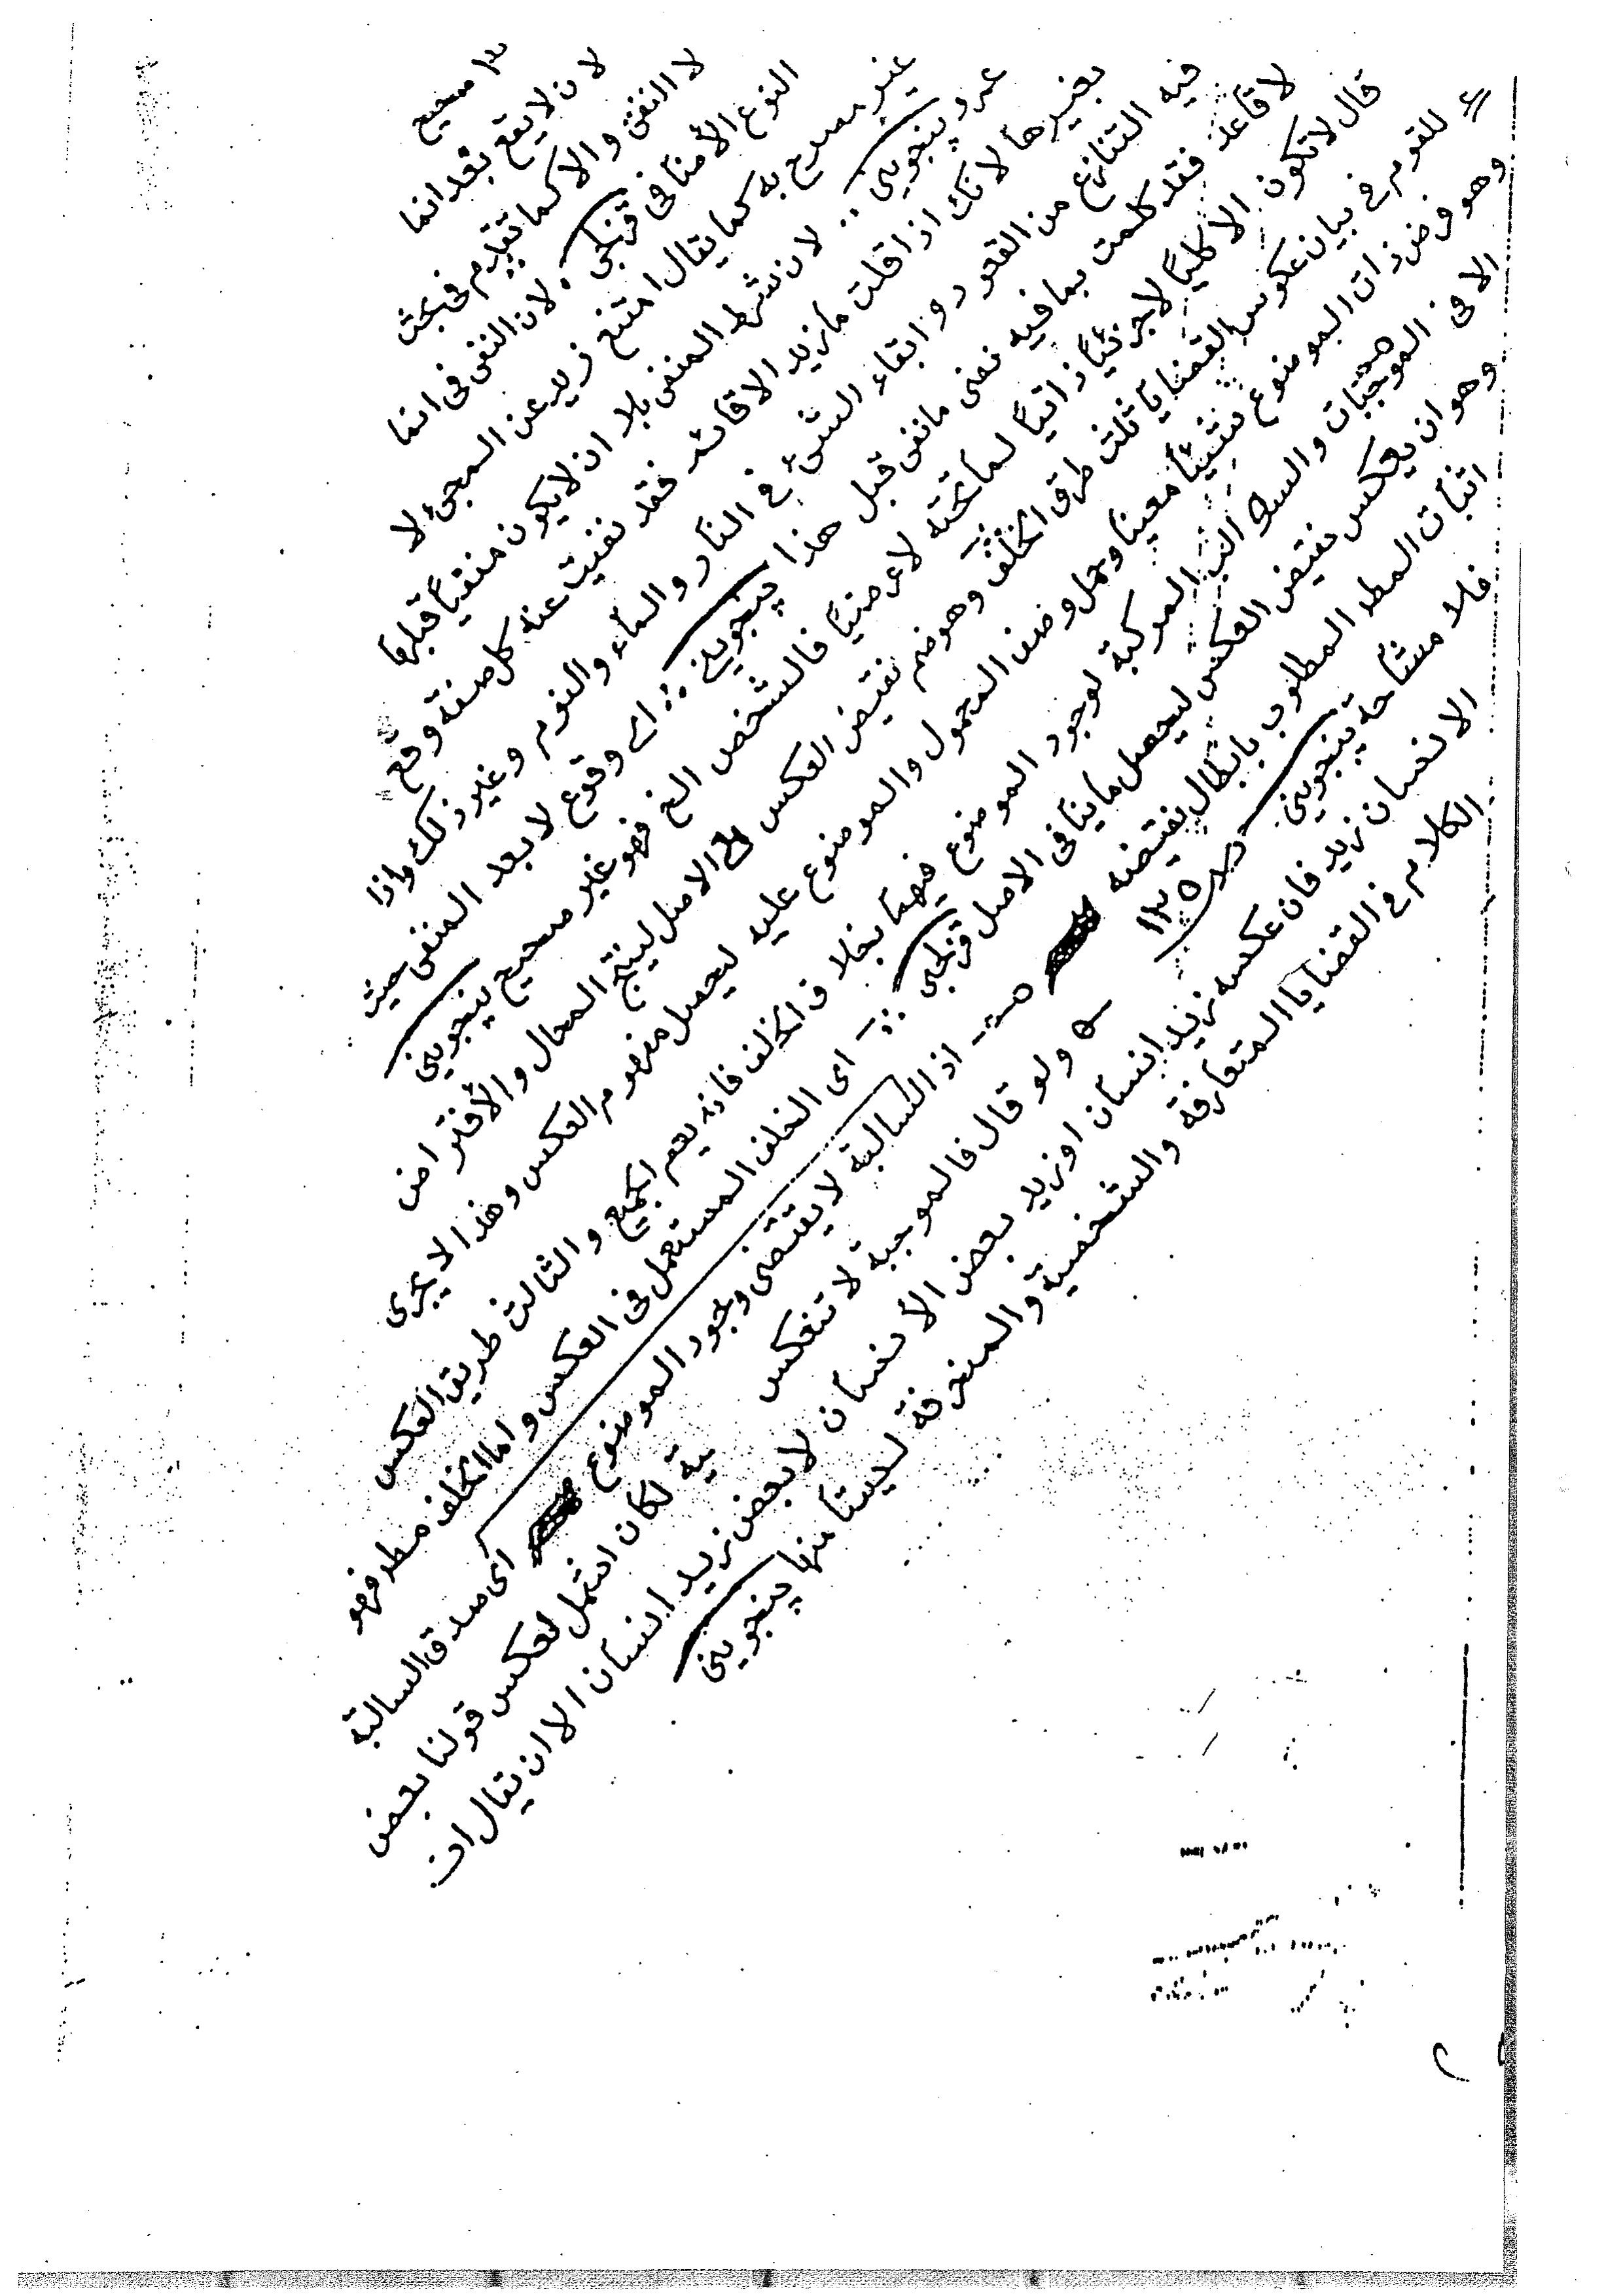 ١٣ صحيح
لان لا يقع بعد انما
لا النفى والا كما تقدم فى بحث
النوع الأضافى قزلجى . لان النفى فى انما
غير مصرح به كما يقال امتنع زيد عن المجئ لا
عمرو پنجوينى : لان شرط المنفى بلا ان لا يكون منفياً قبلها
بغيرها لانك اذا قلت ما زيد الا قائد فقد نفيت عنه كل صفة وقع
فيه التنازع من القعود وابقاء الشئ فى النار والماء والنوم وغير ذلك واذا
لا قاعد فقد كلمت بما فيه نفى مانفى قبل هذا پنجوينى : اے وقوع لا بعد المنفى حيث
قال لا تكون الا كلياً لاجزئياً ذاتياً لما تحته لا عرضياً فالشخص الخ فهو غير صحيح پنجوينى
للقوم فى بيان عكوس القضايا ثلث طرق الخلف وهو ضم نقيض العكس الى الاصل لينتج المحال والأفتراض
وهو فرض ذات الموضوع شيئاً معيناً وحمل وصف المحمول والموضوع عليه ليحصل مفهوم العكس وهذا لا يجرى
الا فى الموجبات والسوالب المركبة لوجود الموضوع فيهما بخلاف الخلف فانه يعم الجميع والثالث طريق العكس
وهو ان يعكس نقيض العكس ليحصل ماينافى الاصل قزلجى :- اى الخلف المستعمل فى العكس واما الخلف مطـ فهو
اثبات المطـ المطلوب بابطال نقيضه صـ اذ السالبة لا يقتضى وجود الموضوع اى صدق السالبة
فلا مشاحة پنجوينى صـ ١٣٥ ولو قال فالموجبة لا تنعكس ية لكان اشمل لعكس قولنا بعض
الانسان زيد فان عكسه زيد انسان او زيد بعض الأنسان لابعض زيد انسان الا ان يقال ان
الكلام فى القضايا المتعارفة والشخصية والمنحرفة ليستا منها پنجوينى